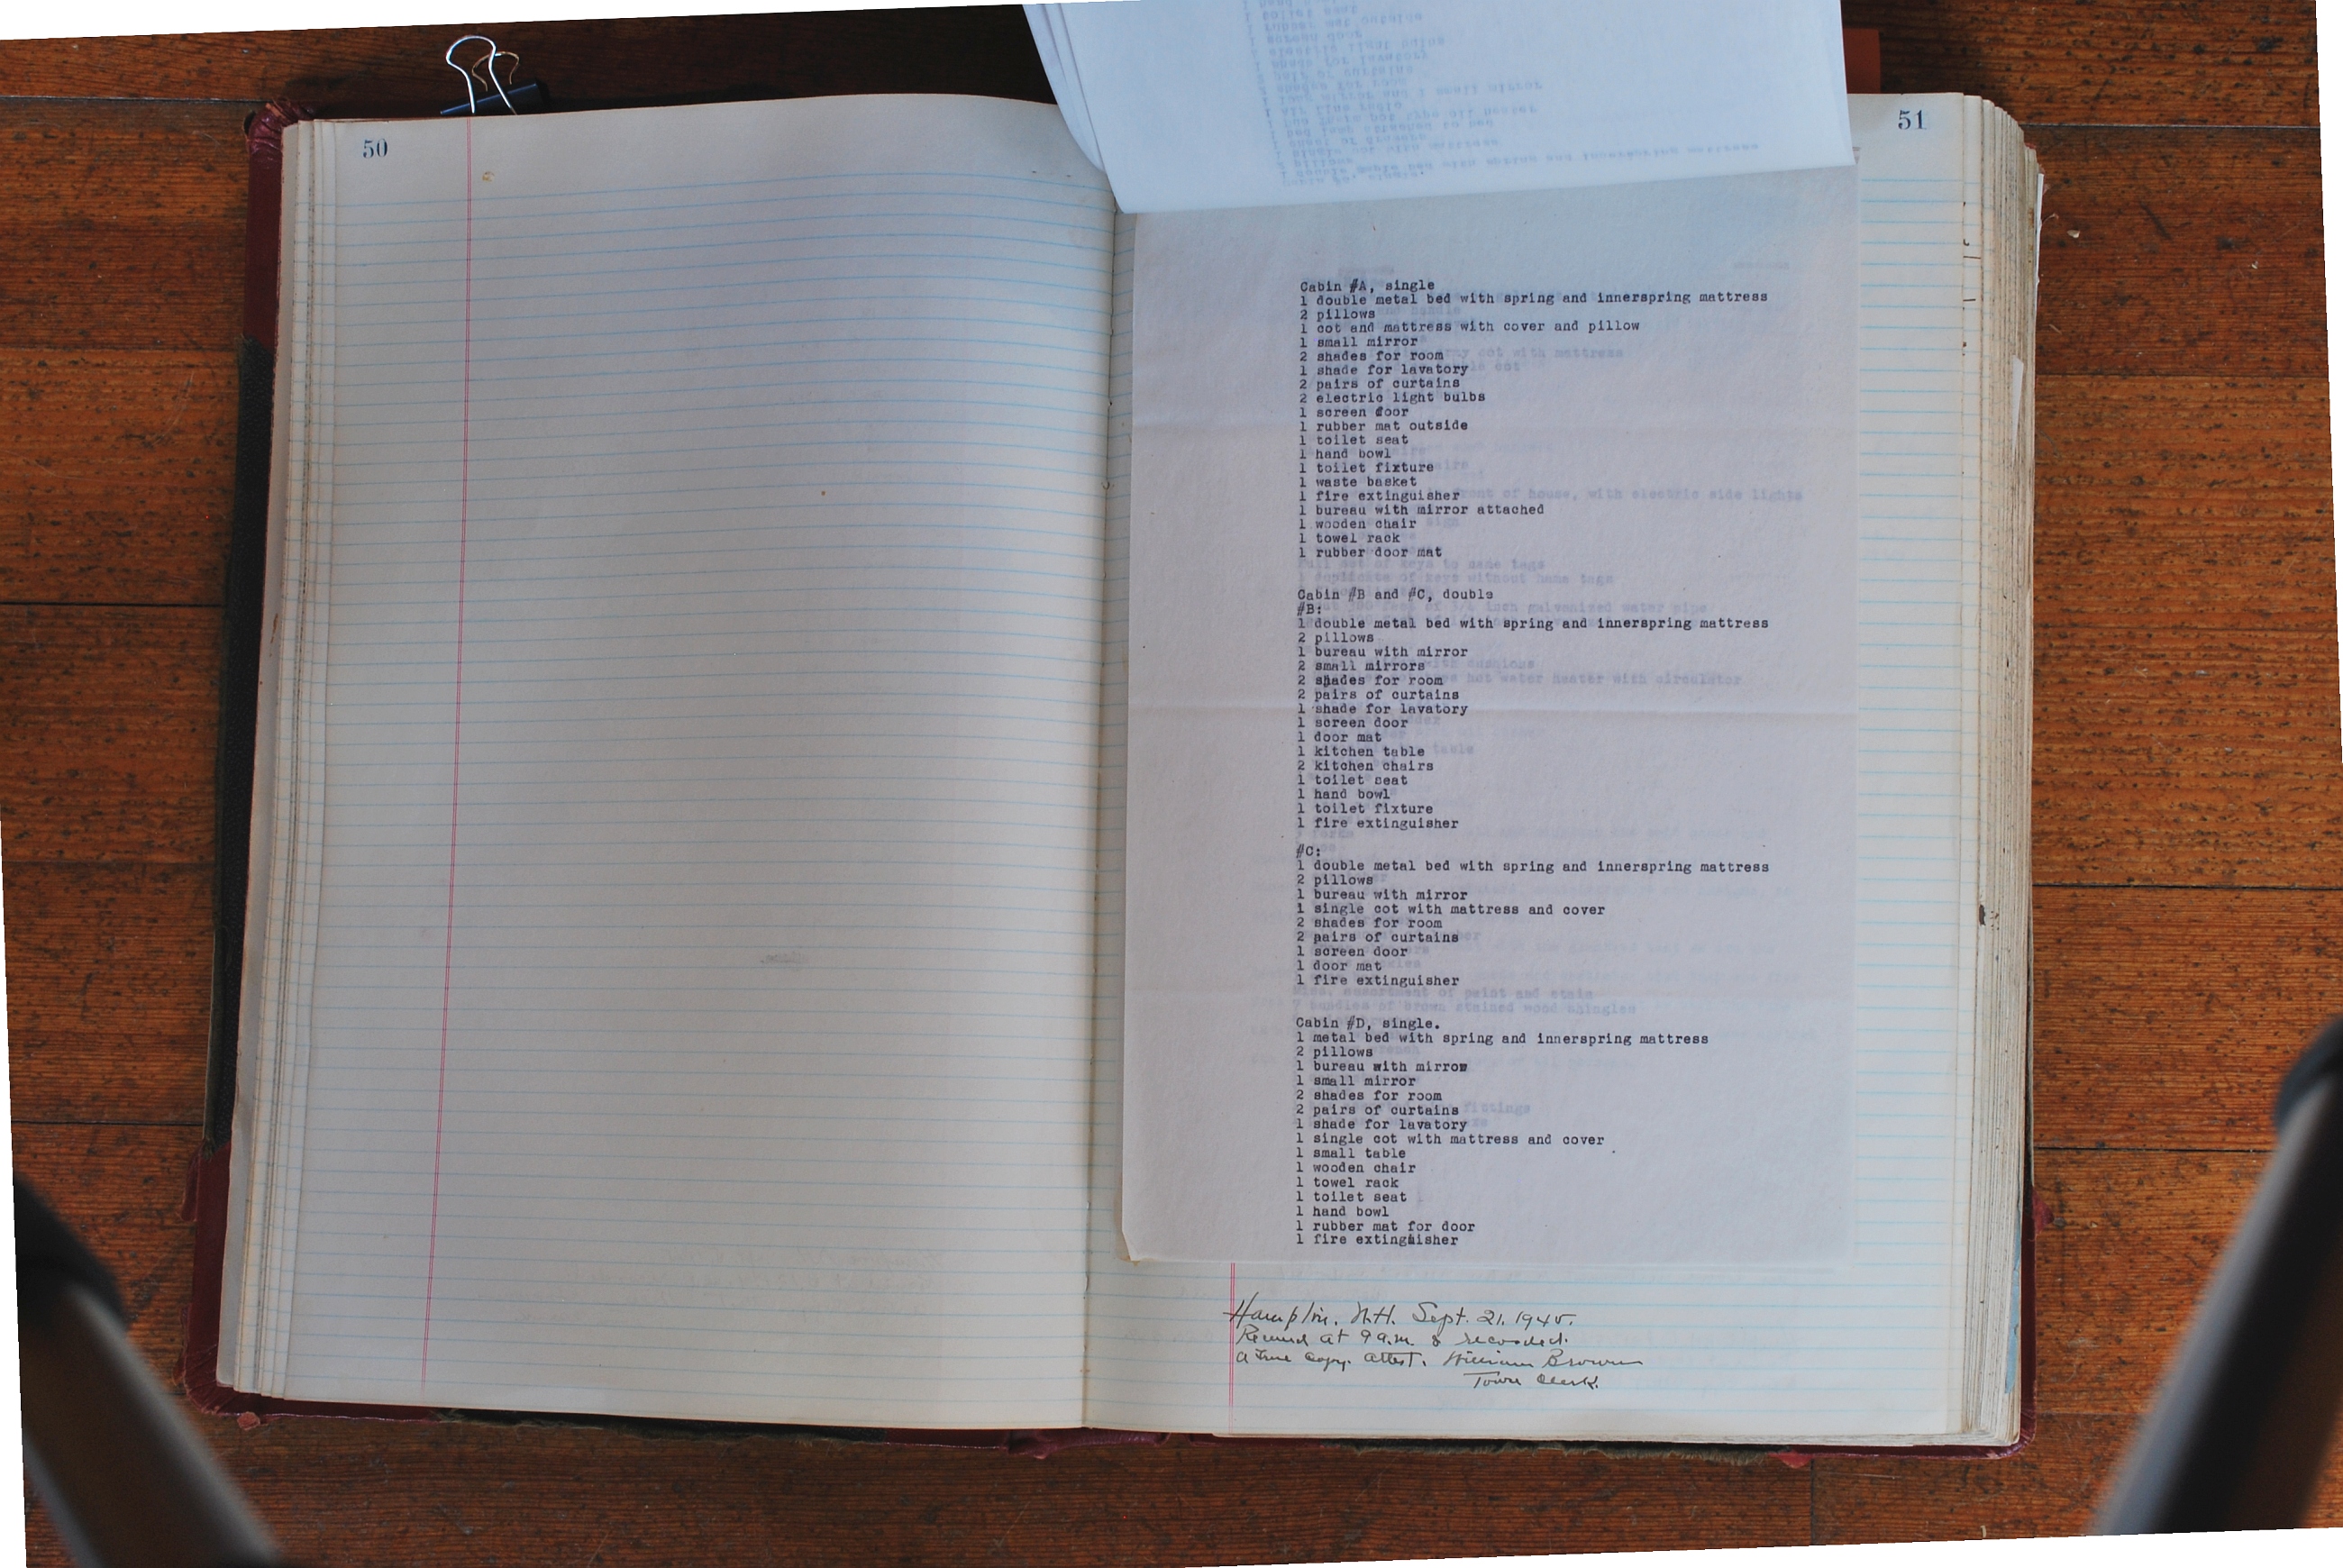 50
51
Cabin #A, single
1 double metal bed with spring and innerspring mattress
2 pillows
1 cot and mattress with cover and pillow
1 small mirror
2 shades for room
1 shade for lavatory
2 pairs of curtains
2 electric light bulbs
1 screen door
1 rubber mat outside
1 toilet seat
1 hand bowl
1 toilet fixture
1 waste basket
1 fire extinguisher
1 bureau with mirror attached
1 wooden chair
1 towel rack
1 rubber door mat
Cabin #B and #C, double
#B:
1 double metal bed with spring and innerspring mattress
2 pillows
1 bureau with mirror
2 small mirrors
2 shades for room
2 pairs of curtains
1 shade for lavatory
1 screen door
1 door mat
1 kitchen table
2 kitchen chairs
1 toilet seat
1 hand bowl
1 toilet fixture
1 fire extinguisher
#C:
1 double metal bed with spring and innerspring mattress
2 pillows
1 bureau with mirror
1 single cot with mattress and cover
2 shades for room
2 pairs of curtains
1 screen door
1 door mat
1 fire extinguisher
Cabin #D, single.
1 metal bed with spring and innerspring mattress
2 pillows
1 bureau with mirror
1 small mirror
2 shades for room
2 pairs of curtains
1 shade for lavatory
1 single cot with mattress and cover
1 small table
1 wooden chair
1 towel rack
1 toilet seat
1 hand bowl
1 rubber mat for door
1 fire extinguisher
Hampton. N.H. Sept. 21. 1945.
Received at 9 a.m. & recorded.
A true copy. Attest. William Brown
Town Clerk.